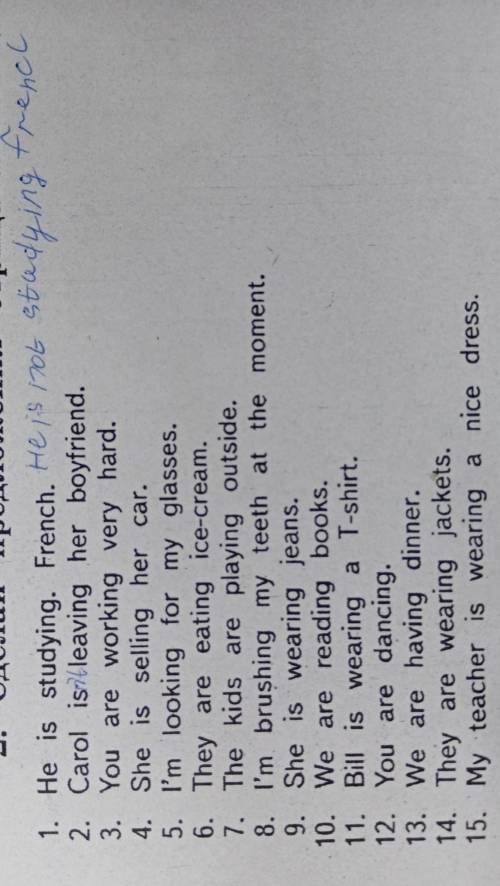 2. Сделай предложения
1. He is studying. French. He is not studying French
2. Carol isn't leaving her boyfriend.
3. You are working very hard.
4. She is selling her car.
5. I'm looking for my glasses.
6. They are eating ice-cream.
7. The kids are playing outside.
8. I'm brushing my teeth at the moment.
9. She is wearing jeans.
10. We are reading books.
11. Bill is wearing a T-shirt.
12. You are dancing.
13. We are having dinner.
14. They are wearing jackets.
15. My teacher is wearing a nice dress.